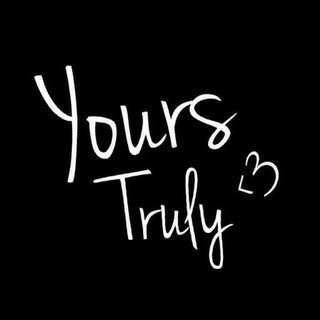 Yours
Truly <3